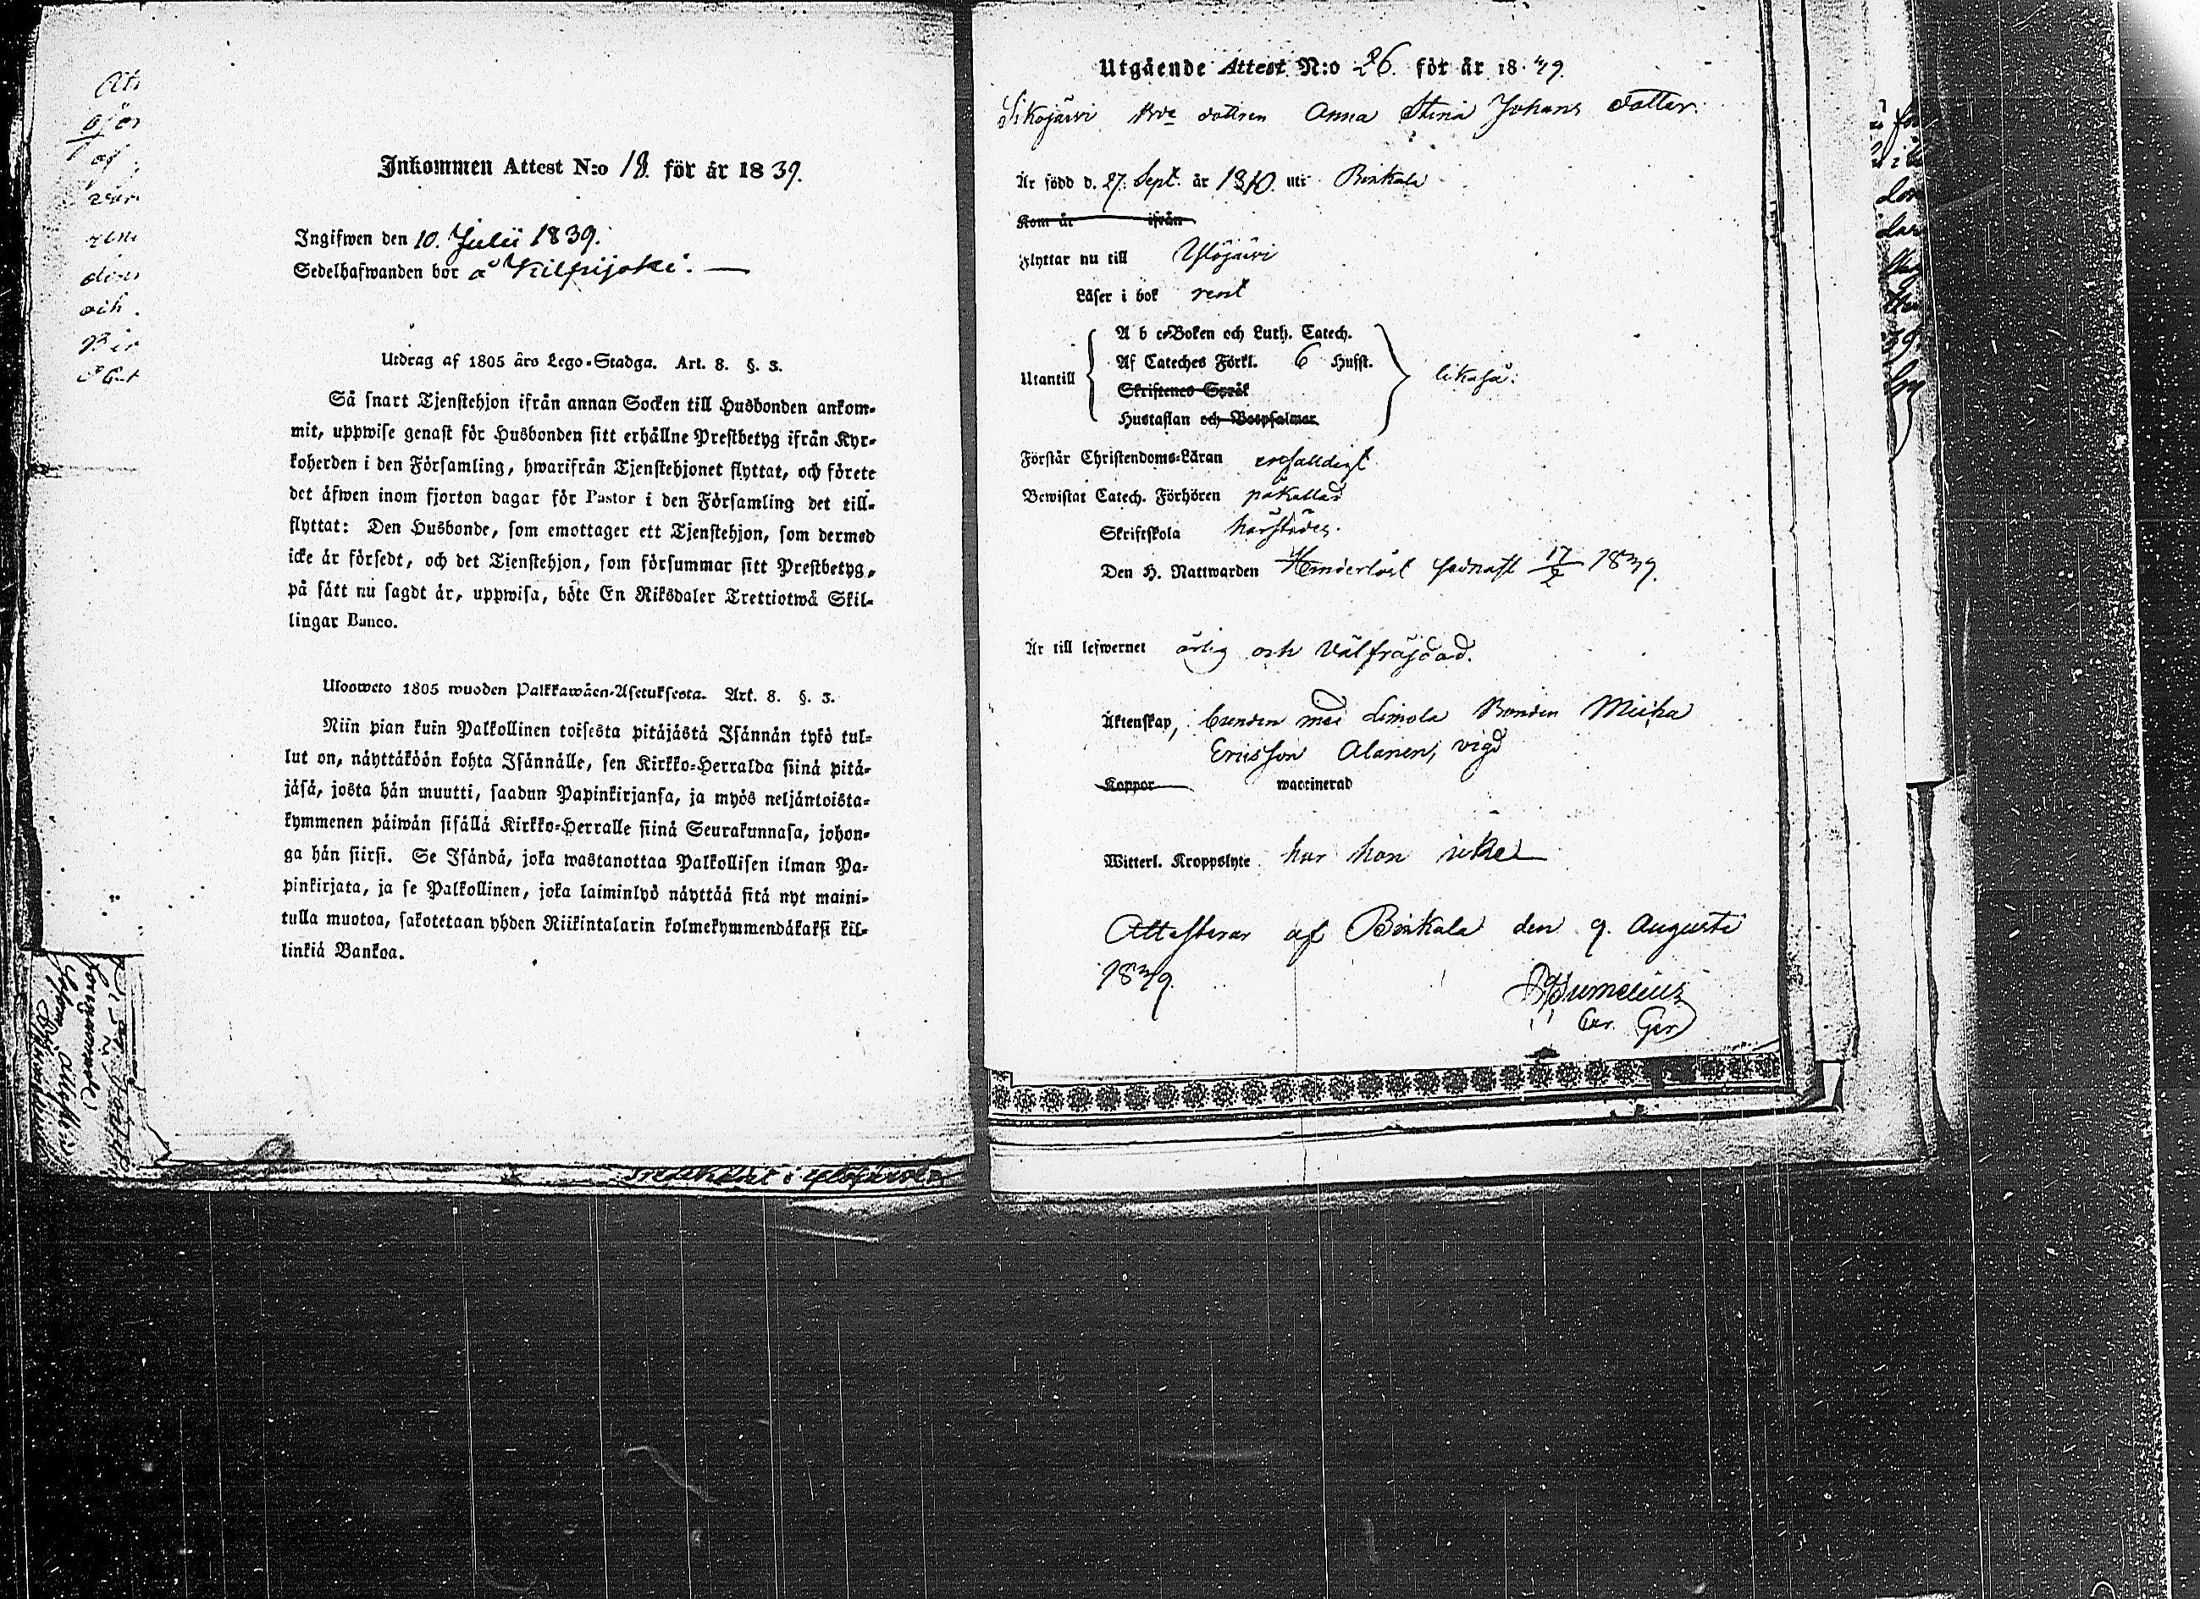 Inkommen Attest N:o 18. för år 1839.
Ingifwen den 10. Julii 1839.
Sedelhafwanden bor å Kilpijoki.
Utdrag af 1805 års Lego-Stadga. Art. 8. §. 3.
Så snart Tjenstehjon ifrån annan Socken till Husbonden ankom-
mit, uppwise genast för Husbonden sitt erhållne Prestbetyg ifrån Kyr-
koherden i den Församling, hwarifrån Tjenstehjonet flyttat, och förete
det äfwen inom fjorton dagar för Pastor i den Församling det till-
flyttat: Den Husbonde, som emottager ett Tjenstehjon, som dermed
icke är försedt, och det Tjenstehjon, som försummar sitt Prestbetyg,
på sätt nu sagdt är, uppwisa, böte En Riksdaler Trettiotwå Skil-
lingar Banco.
Ulosweto 1805 wuoden Palkkawäen-Asetuksesta. Art. 8. §. 3.
Niin pian kuin Palkollinen toisesta pitäjästä Isännän tykö tul-
lut on, näyttäköön kohta Isännälle, sen Kirkko-Herralda siinä pitä-
jäsä, josta hän muutti, saadun Papinkirjansa, ja myös neljäntoista-
kymmenen päiwän sisällä Kirkko-Herralle siinä Seurakunnasa, johon-
ga hän siirsi. Se Isändä, joka wastanottaa Palkollisen ilman Pa-
pinkirjata, ja se Palkollinen, joka laiminlyö näyttää sitä nyt maini-
tulla muotoa, sakotetaan yhden Riikintalarin kolmekymmendäkaksi kil-
linkiä Bankoa.
Utgående Attest N:o 26. för år 1839.
Sikojärvi dottren Anna Stina Johans dotter.
Är född d. 27. Sept. år 1810. uti Birkala
Kom år ifrån
Flyttar nu till Ylöjärvi
Läser i bok rent
A b c-Boken och Luth. Catech.
Af Cateches Förkl. 6 Hufst.
Utantill likaså.
Skriftenes Språk
Hustaflan och Botpsalmar
Förstår Christendoms-Läran enfalldigt
Bewistat Catech. Förhören påkallad
Skriftskola härstädes.
Den H. Nattwarden Hinderlöst sednast 17/2 1839.
Är till lefwernet ärlig och välfräjdad.
Äktenskap, bunden med Bonden Micha
Ericsson Alanen, vigd
Koppor waccinerad
Witterl. Kroppslyte har hon icke
Attesterar af Birkala den 9. Augusti
1839.